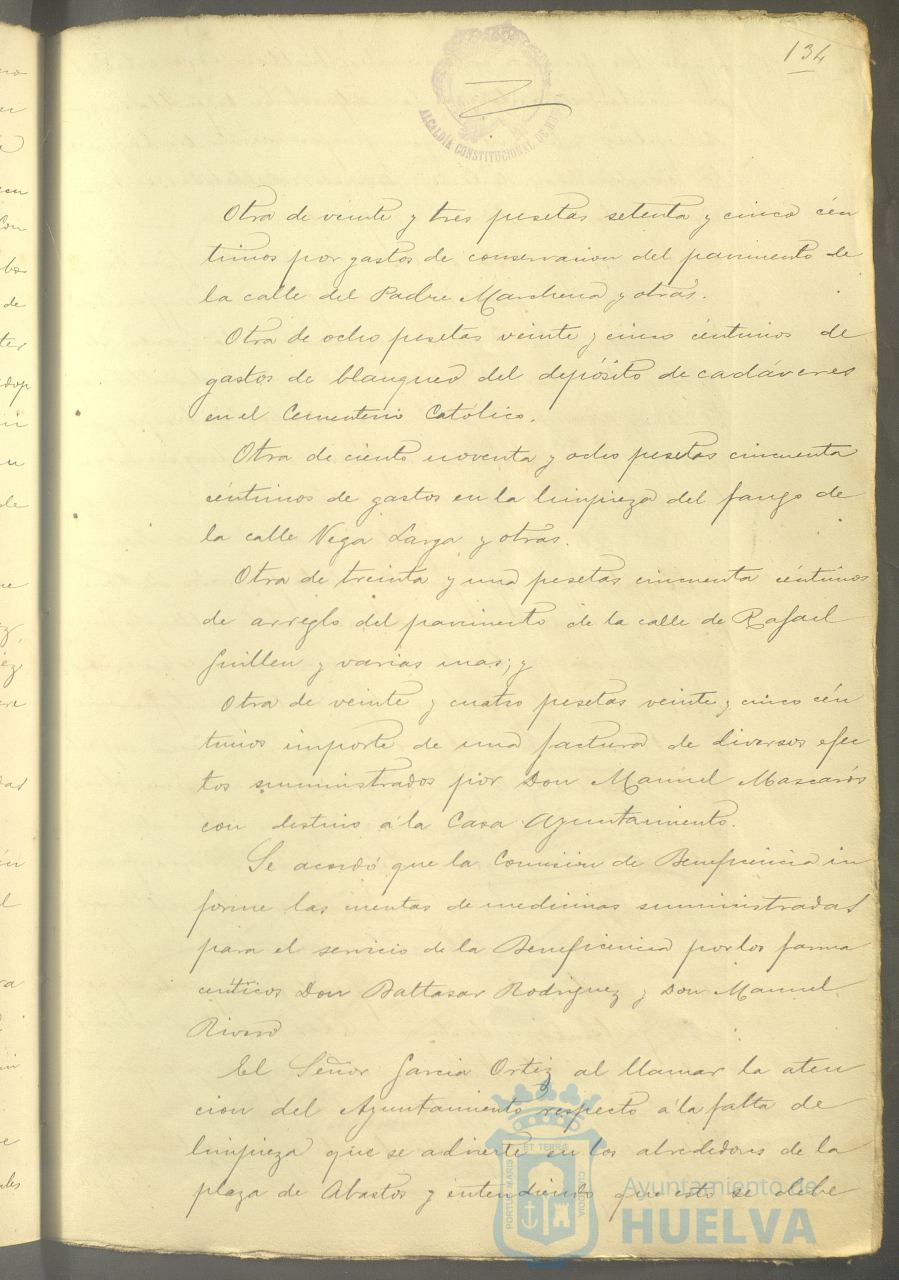 134
ALCALDÍA CONSTITUCIONAL DE
Otra de veinte y tres pesetas setenta y cinco cén
timos por gastos de conservacion del pavimento de
la calle del Padre Marchena y otras.
Otra de ocho pesetas veinte y cinco céntimos de
gastos de blanqueo del depósito de cadáveres
en el Cementerio Católico.
Otra de ciento noventa y ocho pesetas cincuenta
céntimos de gastos en la limpieza del fango de
la calle Vega Larga y otras.
Otra de treinta y una pesetas cincuenta céntimos
de arreglo del pavimento de la calle de Rafael
Guillen y varias mas; y
Otra de veinte y cuatro pesetas veinte y cinco cén
timos importe de una factura de diversos efec
tos suministrados por Don Manuel Mascarós
con destino á la Casa Ayuntamiento.
Se acordó que la Comisión de Beneficencia in
forme las cuentas de medicinas suministradas
para el servicio de la Beneficencia por los farma
ceúticos Don Baltasar Rodriguez y Don Manuel
Rivero
El Señor Garcia Ortiz al llamar la aten
cion del Ayuntamiento respecto á la falta de
limpieza que se advierte en los alrededores de la
plaza de Abastos y entendiendo que esto se debe
PORTUS MARIS ET TERRÆ CUSTODIA
Ayuntamiento de
HUELVA